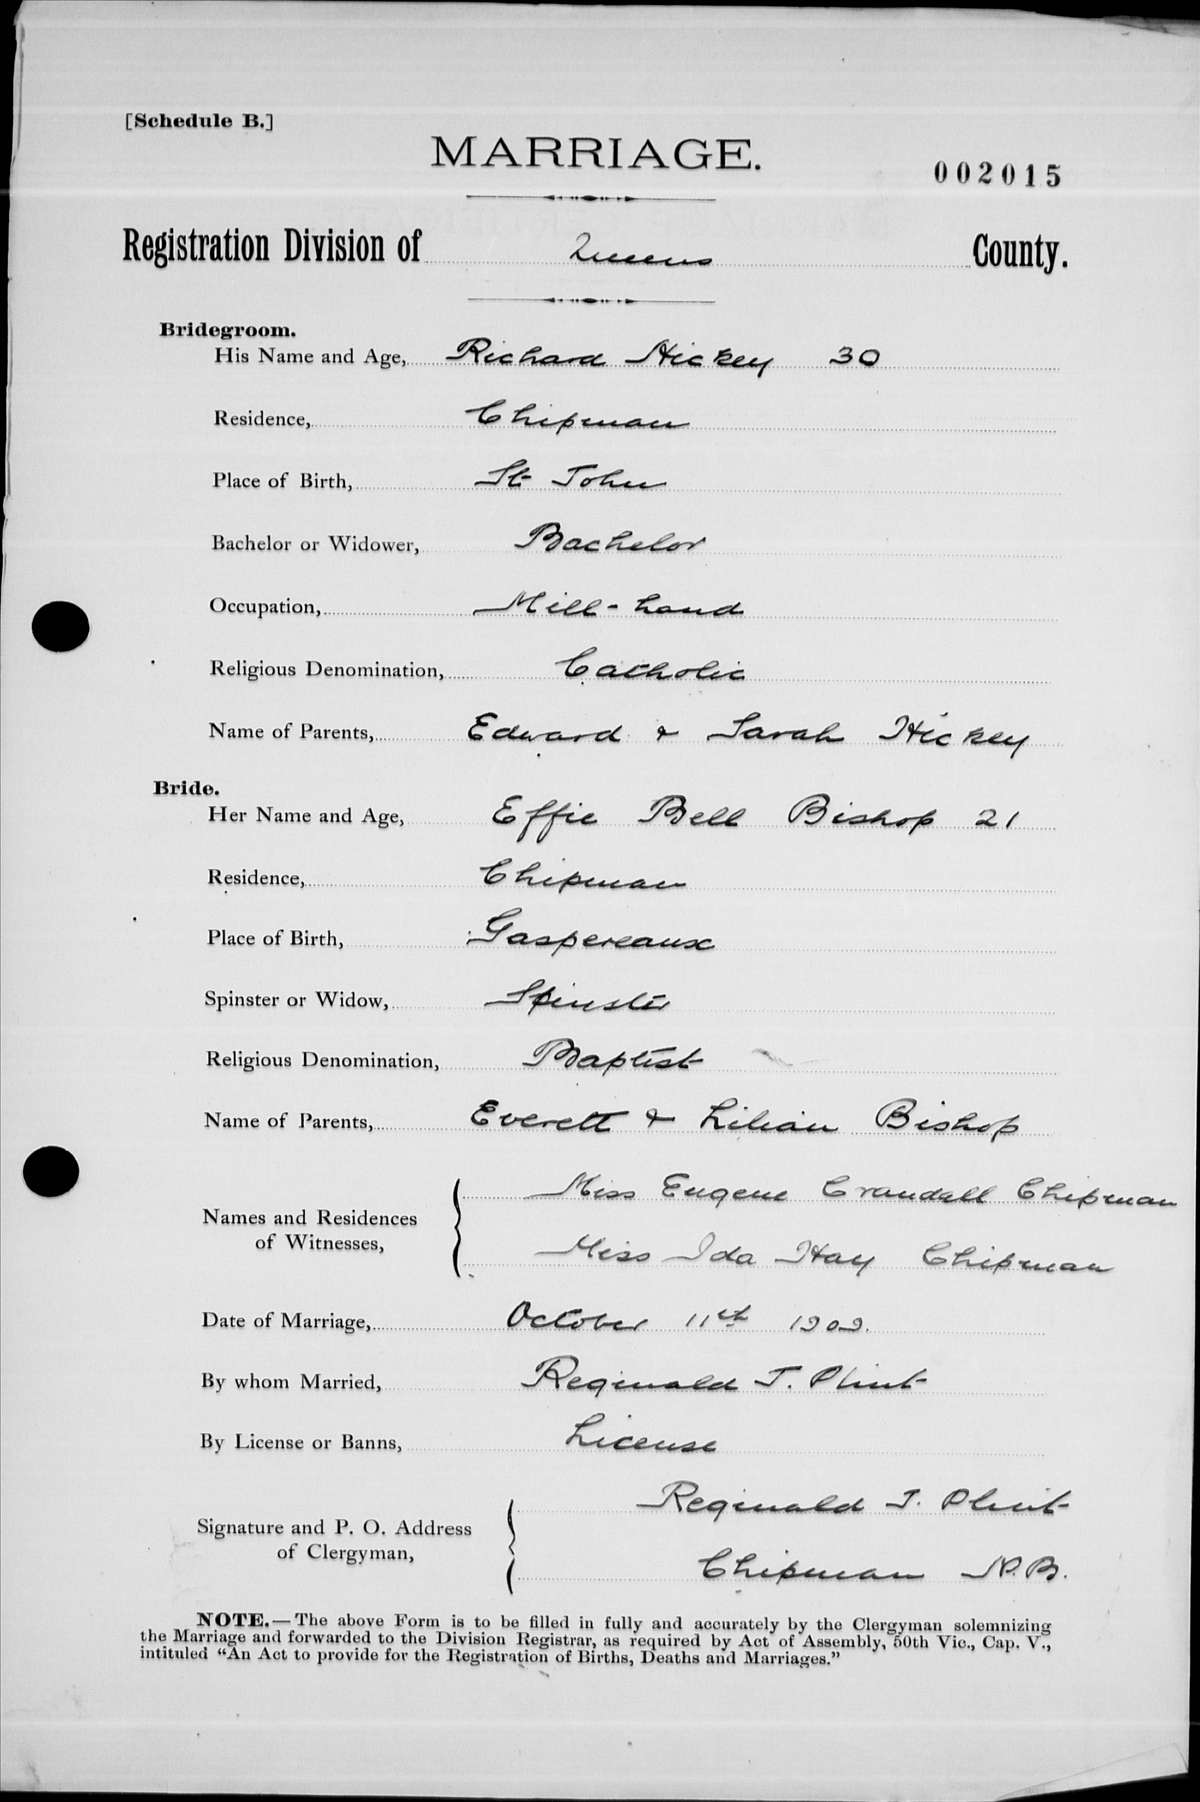 [Schedule B.]
MARRIAGE.
002015
Registration Division of Queens County.
Bridegroom.
His Name and Age, Richard Hickey 30
Residence, Chipman
Place of Birth, St John
Bachelor or Widower, Bachelor
Occupation, Mill-hand
Religious Denomination, Catholic
Name of Parents, Edward & Sarah Hickey
Bride.
Her Name and Age, Effie Bell Bishop 21
Residence, Chipman
Place of Birth, Gaspereaux
Spinster or Widow, Spinster
Religious Denomination, Baptist
Name of Parents, Everett & Lilian Bishop
Names and Residences of Witnesses, Miss Eugene Crandall Chipman
Miss Ida Hay Chipman
Date of Marriage, October 11th 1909.
By whom Married, Reginald J. Plint
By License or Banns, License
Signature and P. O. Address of Clergyman, Reginald J. Plint
Chipman N.B.
NOTE.—The above Form is to be filled in fully and accurately by the Clergyman solemnizing
the Marriage and forwarded to the Division Registrar, as required by Act of Assembly, 50th Vic., Cap. V.,
intituled "An Act to provide for the Registration of Births, Deaths and Marriages."